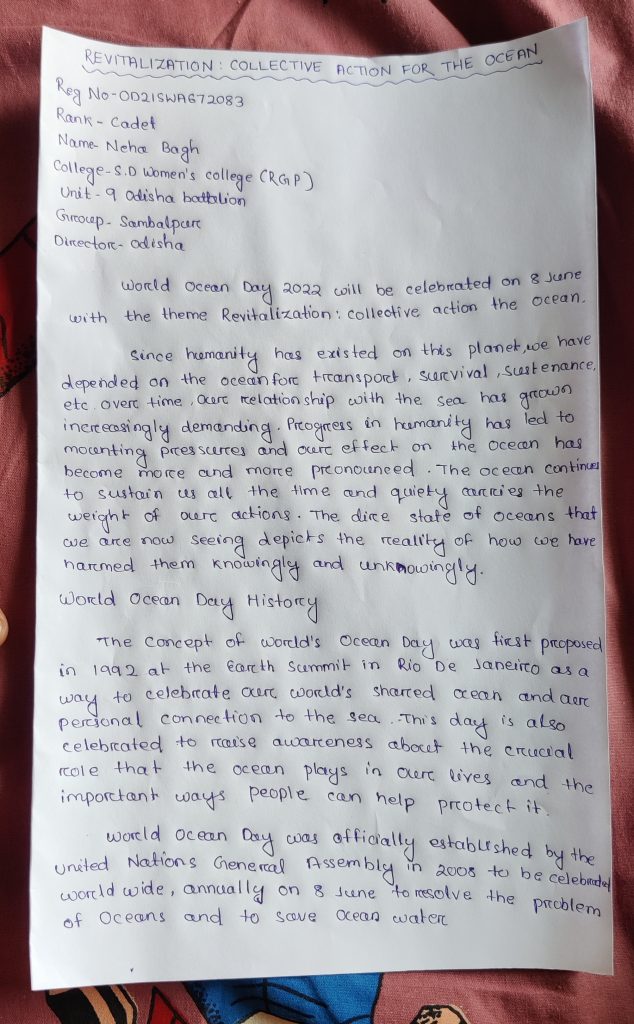 REVITALIZATION : COLLECTIVE ACTION FOR THE OCEAN
Reg No-OD21SWA672083
Rank - Cadet
Name- Neha Bagh
College-S.D Women's college (RGP)
Unit - 9 Odisha battalion
Group- Sambalpur
Director- odisha
World Ocean Day 2022 will be celebrated on 8 June
with the theme Revitalization : collective action the ocean.
Since humanity has existed on this planet,we have
depended on the ocean for transport , survival , sustenance,
etc. over time , our relationship with the sea has grown
increasingly demanding. Progress in humanity has led to
mounting pressures and our effect on the ocean has
become more and more pronounced . The ocean continues
to sustain us all the time and quiety carries the
weight of our actions. The dire state of oceans that
we are now seeing depicts the reality of how we have
harmed them knowingly and unknowingly.
World Ocean Day History
The concept of world's Ocean Day was first proposed
in 1992 at the Earth Summit in Rio De Janeiro as a
way to celebrate our world's shared ocean and our
personal connection to the sea . This day is also
celebrated to raise awareness about the crucial
role that the ocean plays in our lives and the
important ways people can help protect it.
World Ocean Day was officially established by the
United Nations General Assembly in 2008 to be celebrated
world wide , annually on 8 June to resolve the problem
of Oceans and to save ocean water